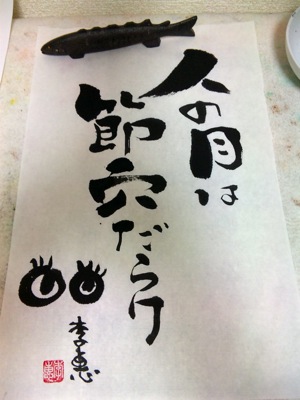 人の目は
節穴だらけ
李惠